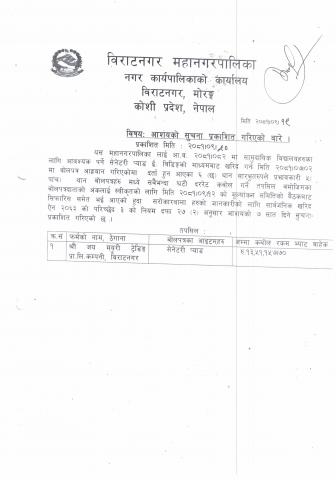 विराटनगर महानगरपालिका
नगर कार्यपालिकाको कार्यालय
विराटनगर, मोरङ
कोशी प्रदेश, नेपाल
मिति २०८१/०९/१९
विषय: आशयको सुचना प्रकाशित गरिएको बारे ।
प्रकाशित मिति : २०८१/०९/
यस महानगरपालिका लाई आ.व. २०८१/०८२ मा सामुदायिक विद्यालयहरुका
लागि आवश्यक पर्ने सेनेटरी प्याड ई. विडिङको माध्यमबाट खरिद गर्न मिति २०८१/०७/०२
मा बोलपत्र आह्वान गरिएकोमा दर्ता हुन आएका ६ (छ) थान सारभुतरुपले प्रभावकारी ५
(पांच) थान बोलपत्रहरु मध्ये सबैभन्दा घटी दररेट कबोल गर्ने तपसिल बमोजिमका
बोलपत्रदाताको अंकलाई स्वीकृतको लागि मिति २०८१/०९/१२ को मूल्यांकन समितिको बैठकबाट
सिफारिस समेत भई आएको हुदा सरोकारवाला हरुको जानकारीको लागि सार्वजनिक खरिद
ऐन २०६३ को परिच्छेद ३ को नियम दफा २७ (२) अनुसार आशयको ७ सात दिने सुचना
प्रकाशित गरिएको छ ।
तपसिल :
क्र.सं फर्मको नाम, ठेगाना बोलपत्रका आइटमहरु जम्मा कबोल रकम भ्याट बाहेक
१ श्री जय मयुरी ट्रेडिङ्ग सेनेटरी प्याड ६,१३,५१,१५७/७०
प्रा.लि.कम्पनी, विराटनगर